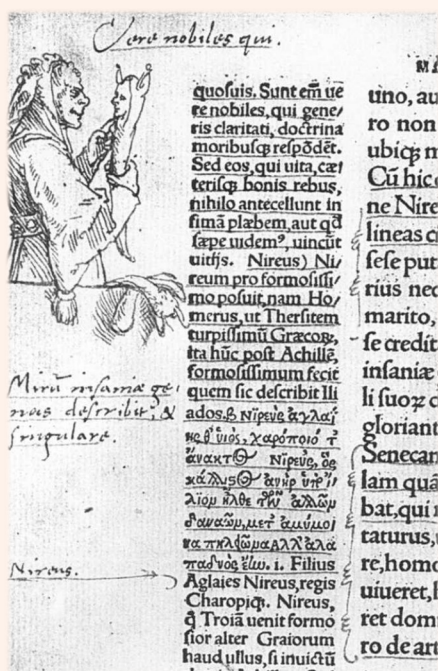 Vere nobiles qui.
quosuis. Sunt em̃ ue
re nobiles, qui gene/
ris claritati, doctrina
moribusq̃ respõdẽt.
Sed eos, qui uita, cæt
terisq̃ bonis rebus,
nihilo antecellunt in
fimã plæbem, aut qđ
sæpe uidemꝰ, uincũt
uitijs. Nireus) Ni/
reum pro formosissi/
mo posuit, nam Ho/
merus, ut Thersitem
turpissimũ Græcoꝝ,
ita hũc post Achillẽ,
formosissimum fecit
quem sic describit Ili
ados.β Νιρεὺς ἀγλαί
Νιρεὺς, ὃς
. i. Filius
Aglaies Nireus, regis
Charopiq̃. Nireus,
q̃ Troiã uenit formo
sior alter Graiorum
haud ullus, si inuictũ
Mirũ insaniæ ge-
nus describit, &
singulare.
Nireus.
MA
uno, au
ro non
ubiq̃ m
Cũ hic
ne Nire
lineas ci
sese put
rius nec
marito,
se credit
insaniæ
li suoꝝ
gloriant
Senecam
lam quã
bat, qui
taturus,
re, homo
uiueret, h
ret dom
ro de art